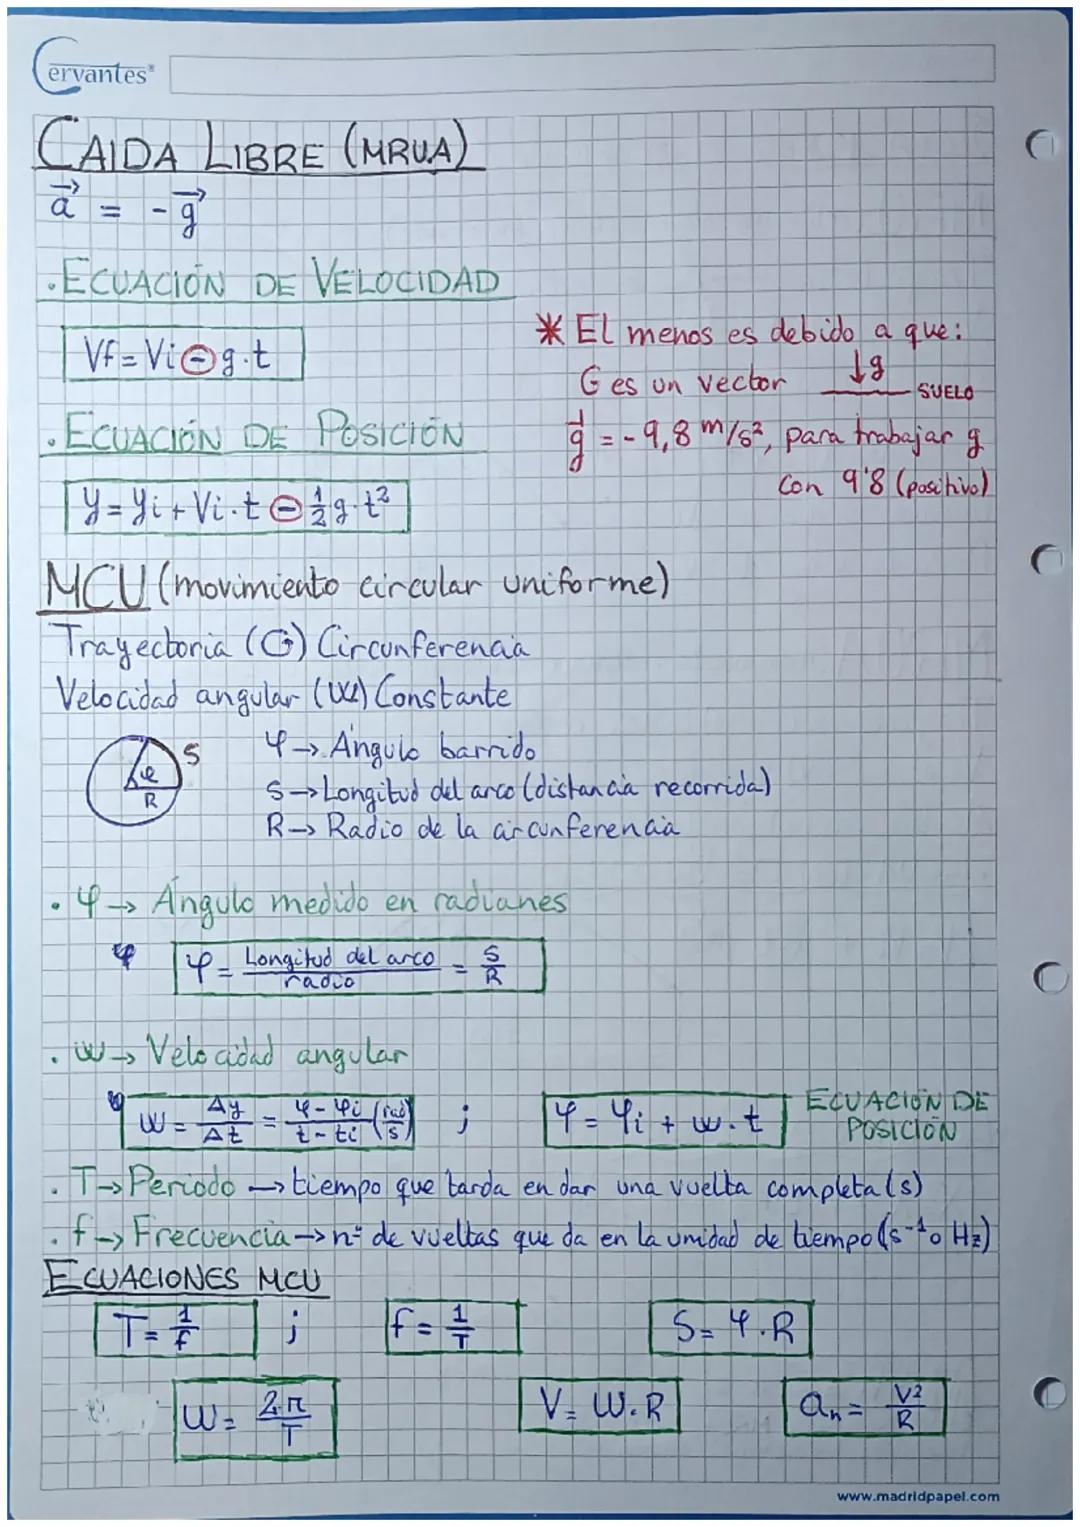 Cervantes®
CAIDA LIBRE (MRUA)
a⃗ = -g⃗
. ECUACIÓN DE VELOCIDAD
Vf = Vi - g·t
* El menos es debido a que:
G es un vector ↓g SUELO
g⃗ = -9,8 m/s², para trabajar g
con 9'8 (positivo)
. ECUACIÓN DE POSICIÓN
y = yi + Vi·t - 1/2 g·t²
MCU (movimiento circular uniforme)
Trayectoria (G) Circunferencia
Velocidad angular (W) Constante
φ S R
φ → Ángulo barrido
S → Longitud del arco (distancia recorrida)
R → Radio de la circunferencia
. φ → Ángulo medido en radianes
φ φ = Longitud del arco / radio = S/R
. W → Velocidad angular
W = Δy/Δt = φ - φi / t - ti (rad/s) ; φ = φi + w·t ECUACIÓN DE POSICIÓN
. T → Periodo → tiempo que tarda en dar una vuelta completa (s)
. f → Frecuencia → nº de vueltas que da en la unidad de tiempo (s⁻¹ o Hz)
ECUACIONES MCU
T = 1/f ; f = 1/T S = φ·R
W = 2·π/T V = W·R an = V²/R
www.madridpapel.com